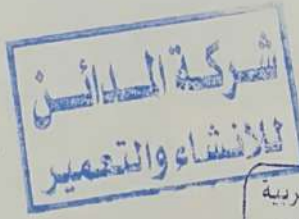 شركة المدائن
للانشاء والتعمير